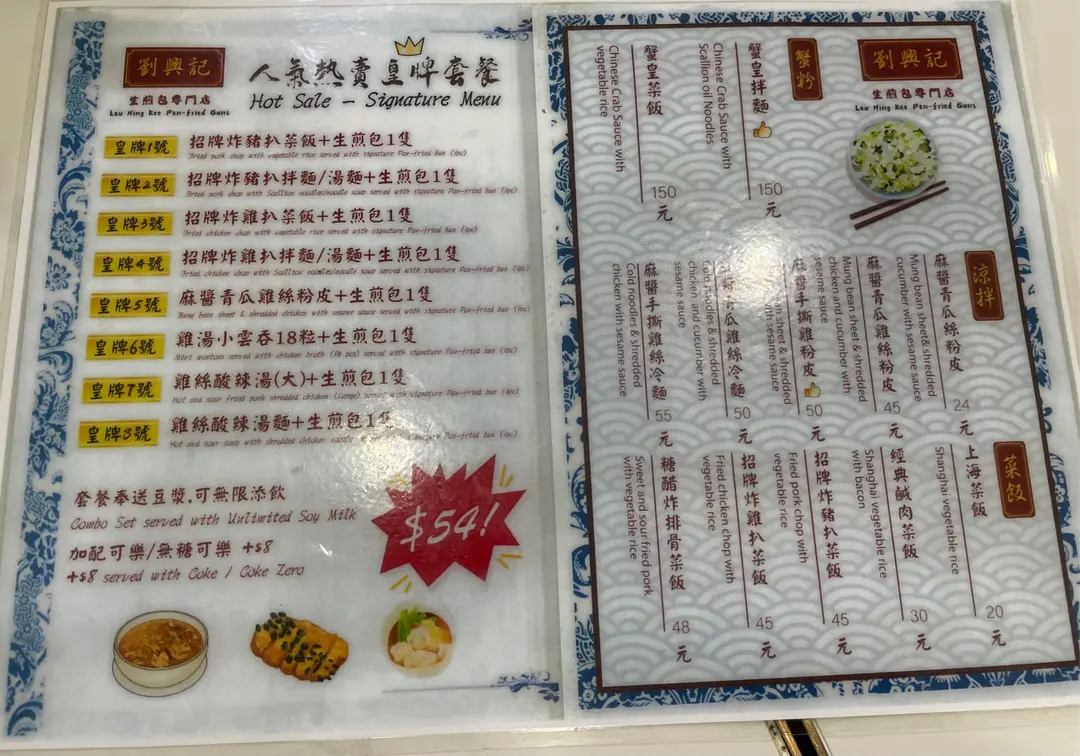 劉興記
生煎包專門店
人氣熱賣皇牌套餐
Hot Sale - Signature Menu
皇牌1號 招牌炸豬扒菜飯+生煎包1隻
Fried pork chop with vegetable rice served with signature Pan-fried bun (1pc)
皇牌2號 招牌炸豬扒拌麵/湯麵+生煎包1隻
Fried pork chop with Scallion noodles/noodle soup served with signature Pan-fried bun (1pc)
皇牌3號 招牌炸雞扒菜飯+生煎包1隻
Fried chicken chop with vegetable rice served with signature Pan-fried bun (1pc)
皇牌4號 招牌炸雞扒拌麵/湯麵+生煎包1隻
Fried chicken chop with Scallion noodles/noodle soup served with signature Pan-fried bun (1pc)
皇牌5號 麻醬青瓜雞絲粉皮+生煎包1隻
Mung bean sheet & shredded chicken with sesame sauce served with signature Pan-fried bun (1pc)
皇牌6號 雞湯小雲吞18粒+生煎包1隻
Mini wontons served with chicken broth (18 pcs) served with signature Pan-fried bun (1pc)
皇牌7號 雞絲酸辣湯(大)+生煎包1隻
Hot and sour fried pork shredded chicken (Large) served with signature Pan-fried bun (1pc)
皇牌8號 雞絲酸辣湯麵+生煎包1隻
Hot and sour soup with shredded chicken noodle signature Pan-fried bun (1pc)
套餐奉送豆漿,可無限添飲
Combo Set served with Unlimited Soy Milk
加配可樂/無糖可樂 +$8
+$8 served with Coke / Coke Zero
$54!
劉興記
生煎包專門店
蟹粉
蟹皇拌麵
Chinese Crab Sauce with
Scallion oil Noodles
150元
蟹皇菜飯
Chinese Crab Sauce with
vegetable rice
150元
涼拌
麻醬青瓜絲粉皮
Mung bean sheet& shredded
cucumber with sesame sauce
24元
麻醬青瓜雞絲粉皮
Mung bean sheet & shredded
chicken and cucumber with
sesame sauce
45元
麻醬手撕雞粉皮
bean sheet & shredded
with sesame sauce
50元
青瓜雞絲冷麵
Cold noodles & shredded
chicken and cucumber with
sesame sauce
50元
麻醬手撕雞絲冷麵
Cold noodles & shredded
chicken with sesame sauce
55元
菜飯
上海菜飯
Shanghai vegetable rice
20元
經典鹹肉菜飯
Shanghai vegetable rice
with bacon
30元
招牌炸豬扒菜飯
Fried pork chop with
vegetable rice
45元
招牌炸雞扒菜飯
Fried chicken chop with
vegetable rice
45元
糖醋炸排骨菜飯
Sweet and sour fried pork
with vegetable rice
48元